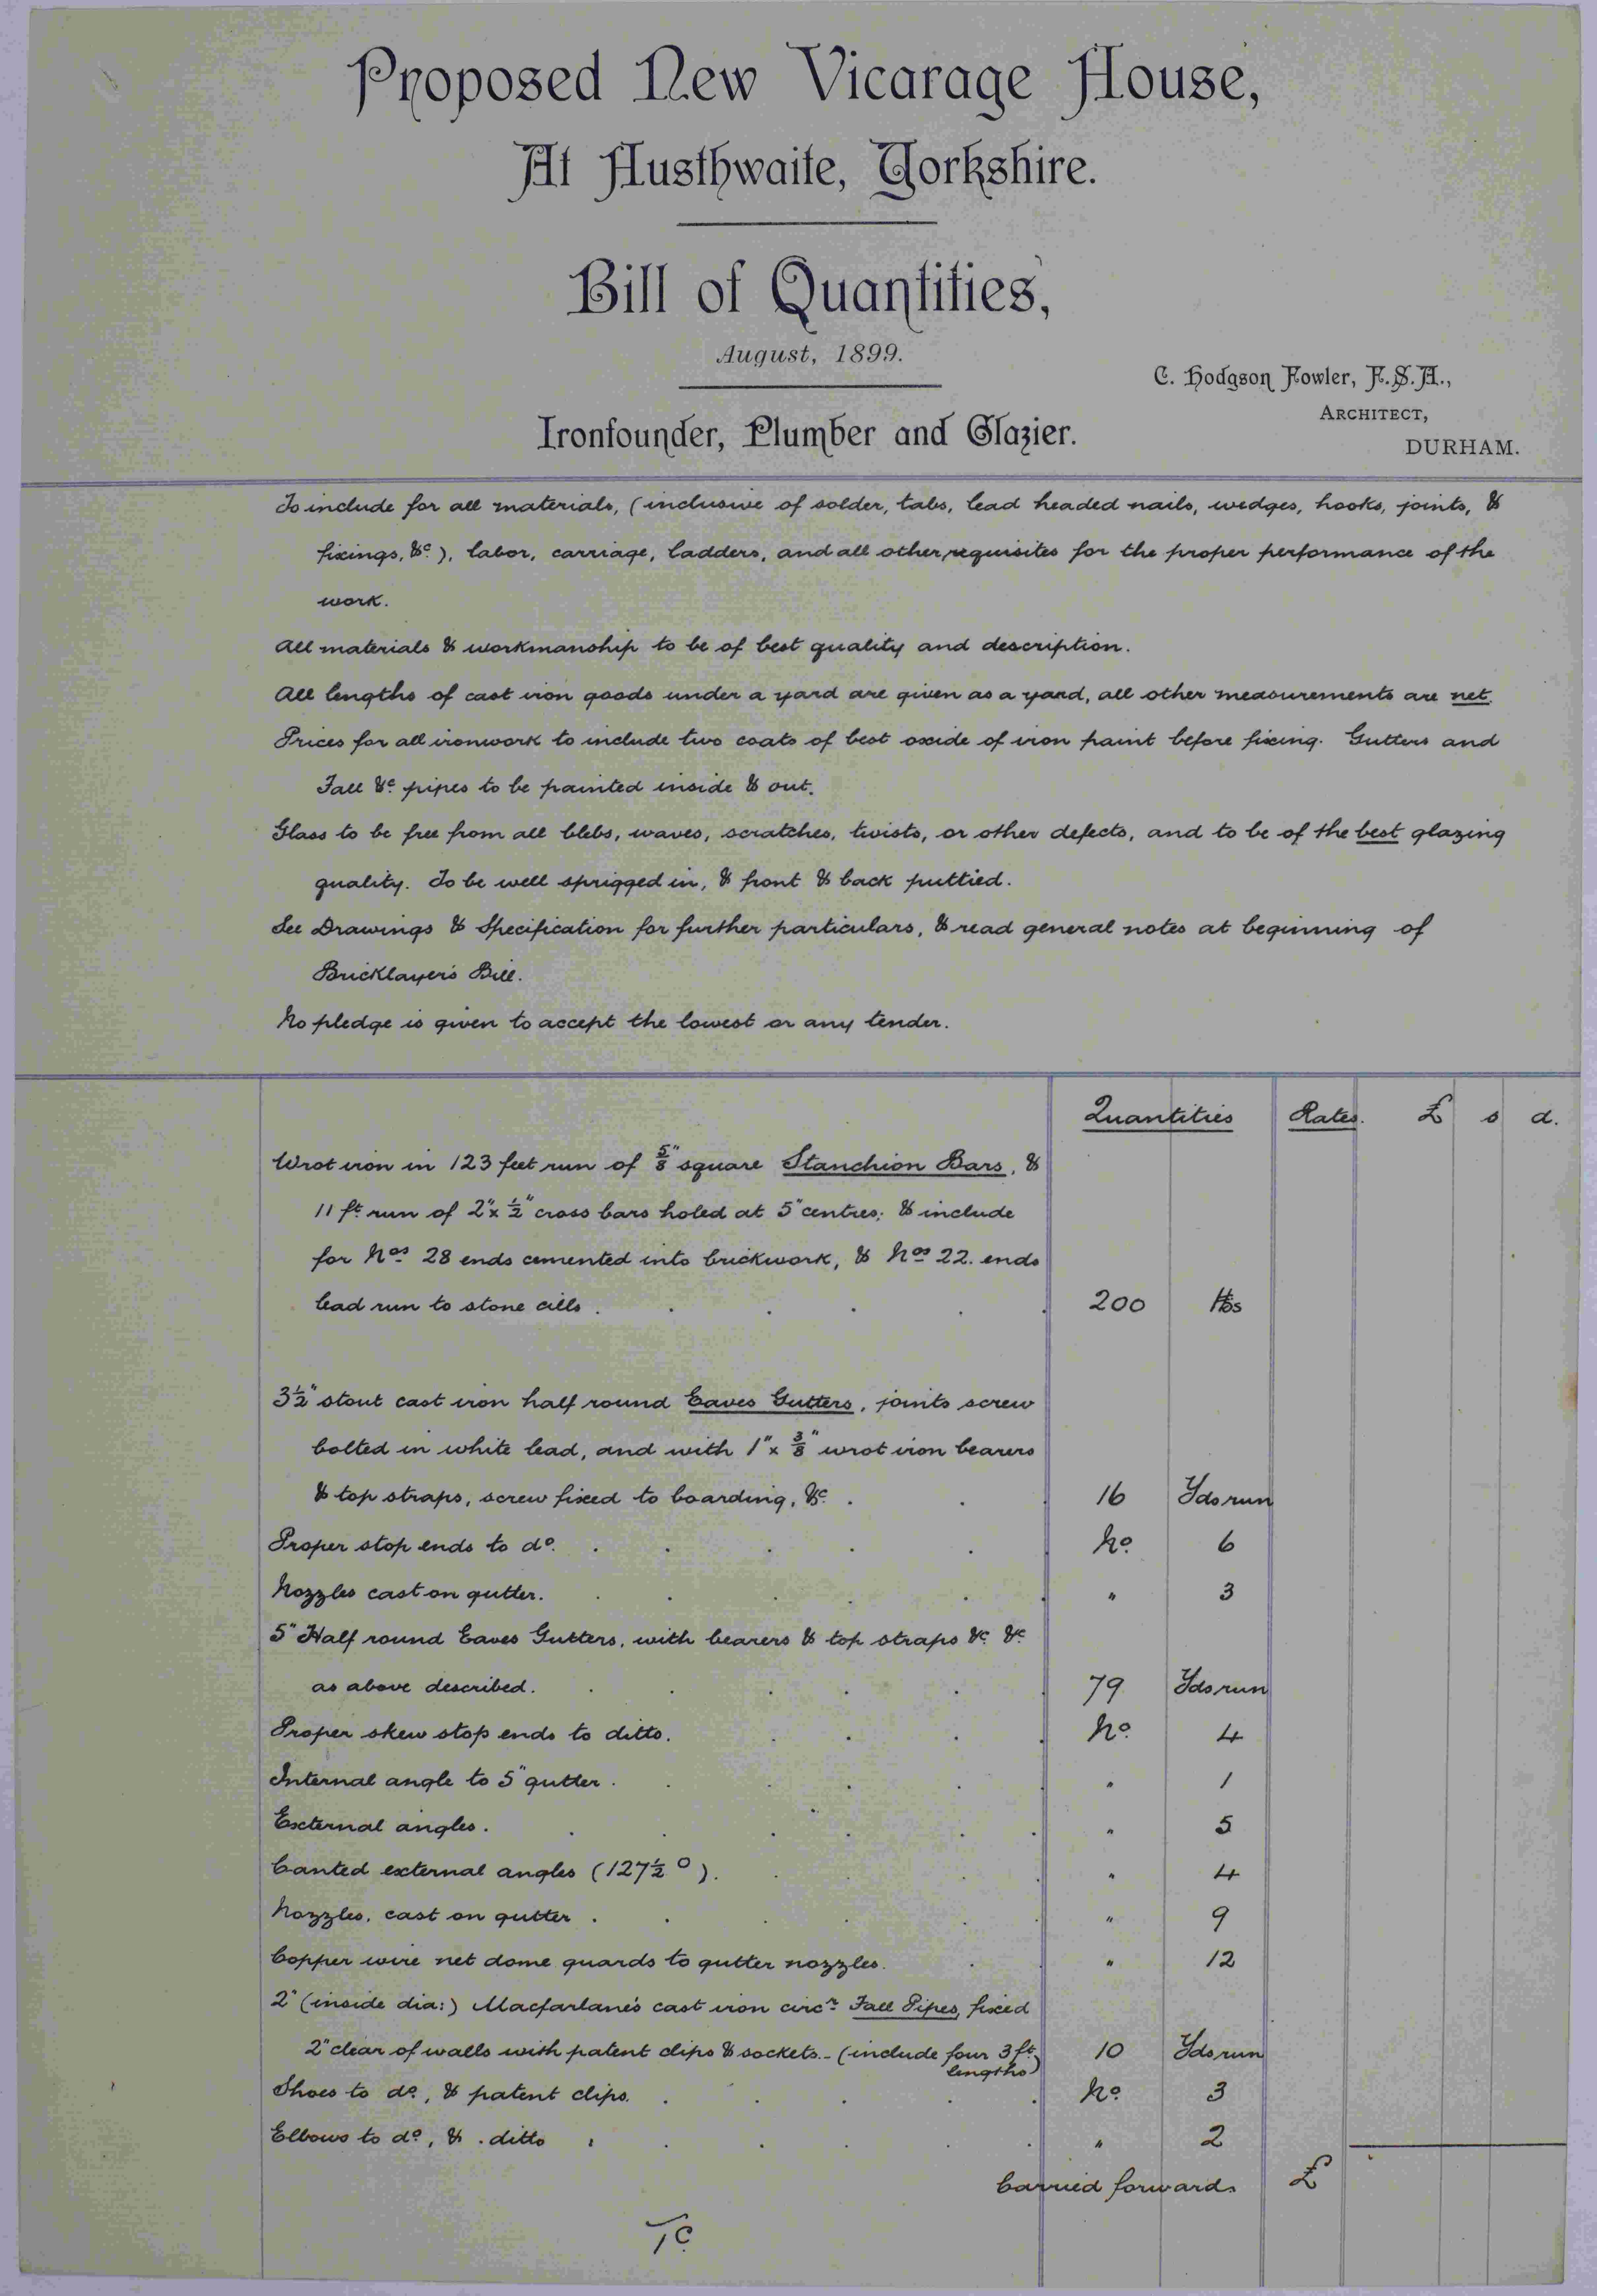 Proposed New Vicarage House,
At Husthwaite, Yorkshire.
Bill of Quantities,
August, 1899.
C. Hodgson Fowler, F.S.A.,
ARCHITECT,
DURHAM.
Ironfounder, Plumber and Glazier.
To include for all materials, (inclusive of solder, tabs, lead headed nails, wedges, hooks, joints, &
fixings, &c.), labor, carriage, ladders, and all other requisites for the proper performance of the
work.
All materials & workmanship to be of best quality and description.
All lengths of cast iron goods under a yard are given as a yard, all other measurements are net.
Prices for all ironwork to include two coats of best oxide of iron paint before fixing. Gutters and
Fall &c. pipes to be painted inside & out.
Glass to be free from all blebs, waves, scratches, twists, or other defects, and to be of the best glazing
quality. To be well sprigged in, & front & back puttied.
See Drawings & Specification for further particulars, & read general notes at beginning of
Bricklayer's Bill.
No pledge is given to accept the lowest or any tender.
Quantities Rates. £ s d.
Wrot iron in 123 feet run of 5/8" square Stanchion Bars, &
11 ft. run of 2" x 1/2" cross bars holed at 5" centres; & include
for Nos. 28 ends cemented into brickwork, & Nos 22. ends
lead run to stone cills . . . . . 200 lbs
3 1/2" stout cast iron half round Eaves Gutters, joints screw
bolted in white lead, and with 1" x 3/8" wrot iron bearers
& top straps, screw fixed to boarding, &c. . . . 16 Yds run
Proper stop ends to do. . . . . . No. 6
Nozzles cast on gutter. . . . . . " 3
5" Half round Eaves Gutters, with bearers & top straps &c. &c.
as above described. . . . . . 79 Yds run
Proper skew stop ends to ditto. . . . . No. 4
Internal angle to 5" gutter . . . . . " 1
External angles. . . . . . " 5
Canted external angles (127 1/2 °). . . . " 4
Nozzles, cast on gutter . . . . . " 9
Copper wire net dome guards to gutter nozzles. . . " 12
2" (inside dia:) Macfarlane's cast iron circr. Fall Pipes, fixed
2" clear of walls with patent clips & sockets. - (include four 3 ft. 10 Yds run
lengths)
Shoes to do., & patent clips. . . . . No. 3
Elbows to do, & . ditto . . . . . " 2
Carried forwards £